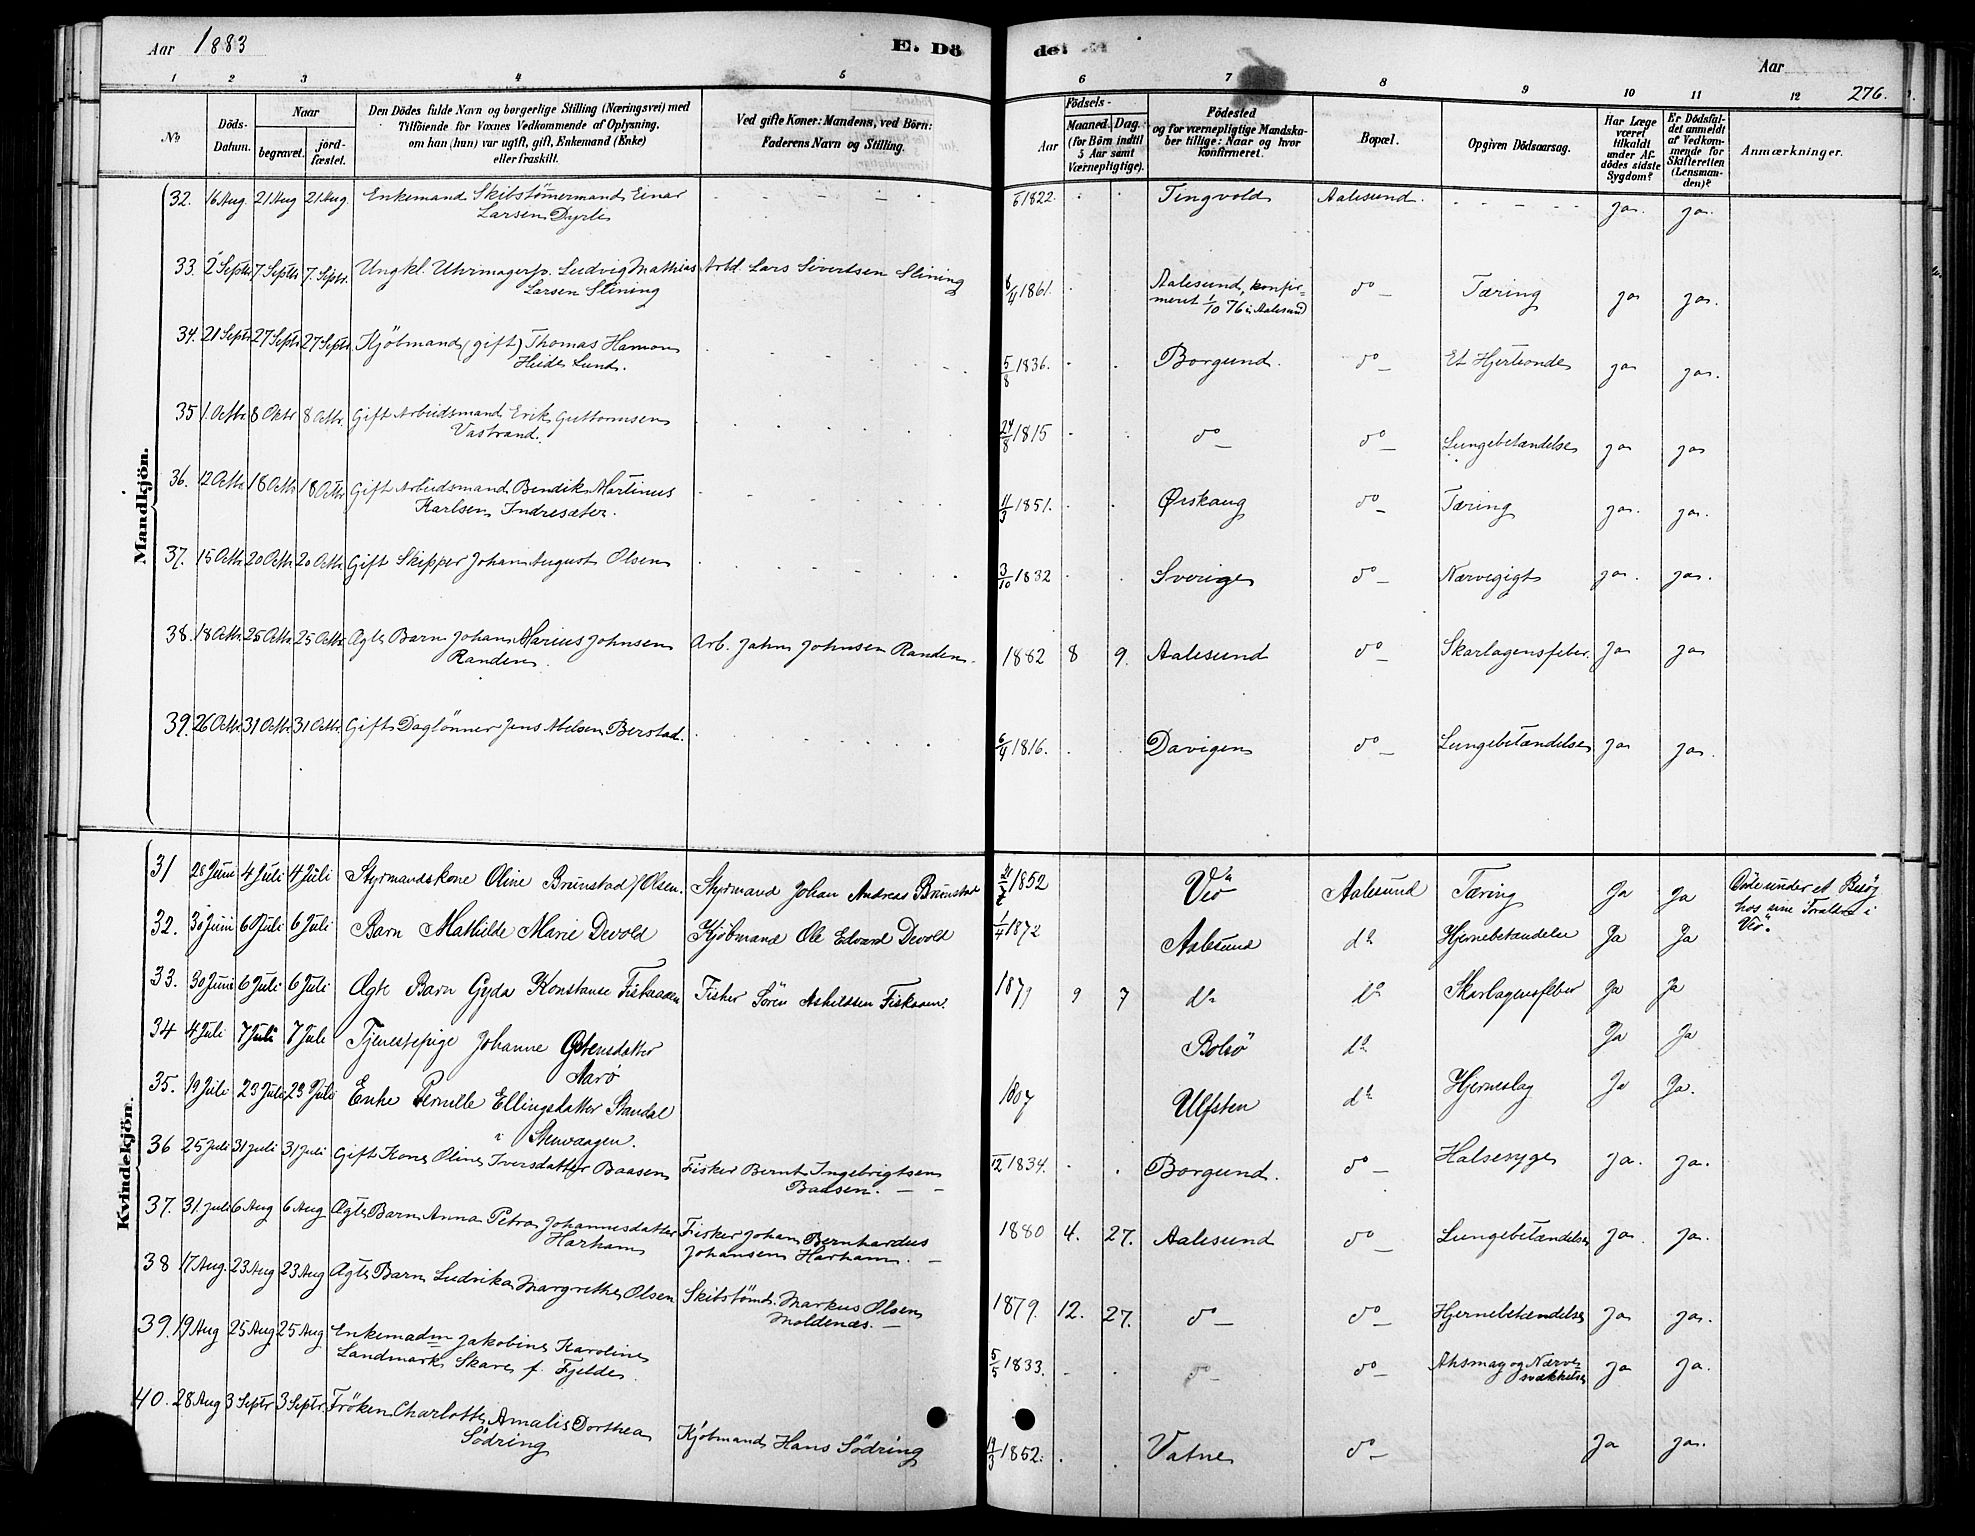 Aar 1883
E. Dö
de.
Aar
276.
1 2 3 4 5 6 7 8 9 10 11 12
No
Döds-Datum.
Naar
begravet.
jord-fæstet.
Den Dödes fulde Navn og borgerlige Stilling (Næringsvei) med
Tilföiende for Voxnes Vedkommende af Oplysning,
om han (hun) var ugift, gift, Enkemand (Enke)
eller fraskilt.
Ved gifte Koner: Mandens, ved Börn:
Faderens Navn og Stilling.
Födsels-
Aar
Maaned. Dag.
(for Börn indtil
5 Aar samt
Værnepligtige).
Födested
og for værnepligtige Mandska-
ber tillige: Naar og hvor
konfirmeret.
Bopæl.
Opgiven Dödsaarsag.
Har Læge
været
tilkaldt
under Af-
dödes sidste
Sygdom?
Er Dödsfal-
det anmeldt
af Vedkom-
mende for
Skifteretten
(Lensman-
den)?
Anmærkninger.
Mandkjön.
32. 16 Aug. 21 Aug 21 Aug. Enkemand Skibstömermand Einar 1822. Tingvold Aalesund. ja. ja.
Larsen Dyrli
33. 2 Septr 7 Septr 7 Septr. Ungkl. Uhrmagersv. Ludvig Mathias Arbd. Lars Sivertsen Slining 8/4 1861. Aalesund, konfir- do Tæring ja ja.
Larsen Slining meret 1/10 76 i Aalesund
34. 21 Septr 27 Septr 27 Septr. Kjöbmand (gift) Thomas Hamon 5/8 1836. Borgund. do Et Hjerteonde ja ja.
Heide Lund.
35 1. Octbr 8 Octbr 8 Octbr. Gift Arbeidsmand Erik Guttormsen 24/8 1815 do do Lungebetændelse ja ja
Vastrand.
36. 12 Octbr 18 Octbr 18 Octbr Gift Arbeidsmand Bendik Martinus 11/3 1851. Ørskoug do Tæring ja. ja.
Karlsen Indresæter.
37. 15 Octbr 20 Octbr 20 Octbr. Gift Skipper Johan August Olsen 3/10 1832 Sverige do Nærvegigt ja. ja.
38. 18 Octbr. 25 Octbr 25 Octbr. Ægte Barn Johan Marius Johnsen Arb. Jahn Johnsen Randen. 1882 8 9. Aalesund do Skarlagensfeber. ja ja
Randen.
39. 26 Octbr. 31 Octbr. 31 Octbr. Gift Daglönner Jens Abelsen Berstad. 6/4 1816. Davigen do Lungebetændelse ja ja.
Kvindekjön.
31 28 Juni 4 Juli 4 Juli Styrmandskone Oline Brunstad f. Olsen. Styrmand Johan Andreas Brunstad 1852 Veö Aalesund Tæring Ja Ja Döde under et Besög
hos sine Forældre i
Veö.
32. 30 Juni 6 Juli 6 Juli Barn Mathilde Marie Devold Kjöbmand Ole Edvard Devold 1/4 1872 Aalesund do Hjernebetændelse Ja Ja
33. 30 Juni 6 Juli 6 Juli Ægte Barn Gyda Konstanse Fiskaaen Fisker Sören Askildsen Fiskaaen. 1879 9 7 do do Skarlagensfeber Ja Ja
34 4 Juli 7 Juli 7 Juli Tjenestepige Johanne Bolsö do Ja Ja
Aarö
35. 19 Juli 23 Juli 23 Juli Enke Pernille Ellingsdatter Standal 1807 Ulfsten do Hjerneslag Ja Ja.
i Stenvaagen.
36 25 Juli 31 Juli 31 Juli Gift Kone Oline Iversdatter Baasen Fisker Bernt Ingebrigtsen /12 1834. Borgund. do Halsesyge ja. ja.
Baasen.
37. 31. Juli 6 Aug 6 Aug Ægte Barn Anna Petra Johannesdatter Fisker Johan Bernhardus 1880 4. 27. Aalesund do Lungebetændelse ja. ja.
Harham Johansen Harham.
38 17 Aug. 23 Aug 23 Aug Ægte Barn Ludvika Margrethe Olsen Skibstömd. Markus Olsen 1879. 12. 27. do do Hjernebetændelse ja ja.
Moldenæs.
39. 19 Aug 25 Aug 25 Aug Enkemadm Jakobine Karoline 5/5 1833. do do Ahsma og Nærve- ja ja.
Landmark Skare f. Fjelde. svækkelse
40. 28 Aug 3 Septr 3 Septr. Fröken Charlotte Amalie Dorthea Kjöbmand Hans Södring 19/3 1852. Vatne do ja ja.
Södring